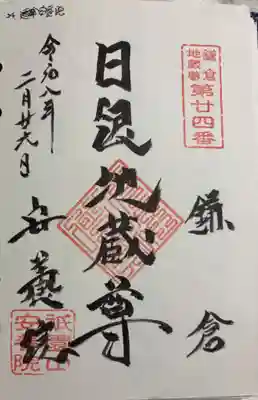 鎌倉
地蔵尊
第廿四番
鎌倉
日限地蔵尊
令和八年
二月廿六日
安養院
祇園山
安養院